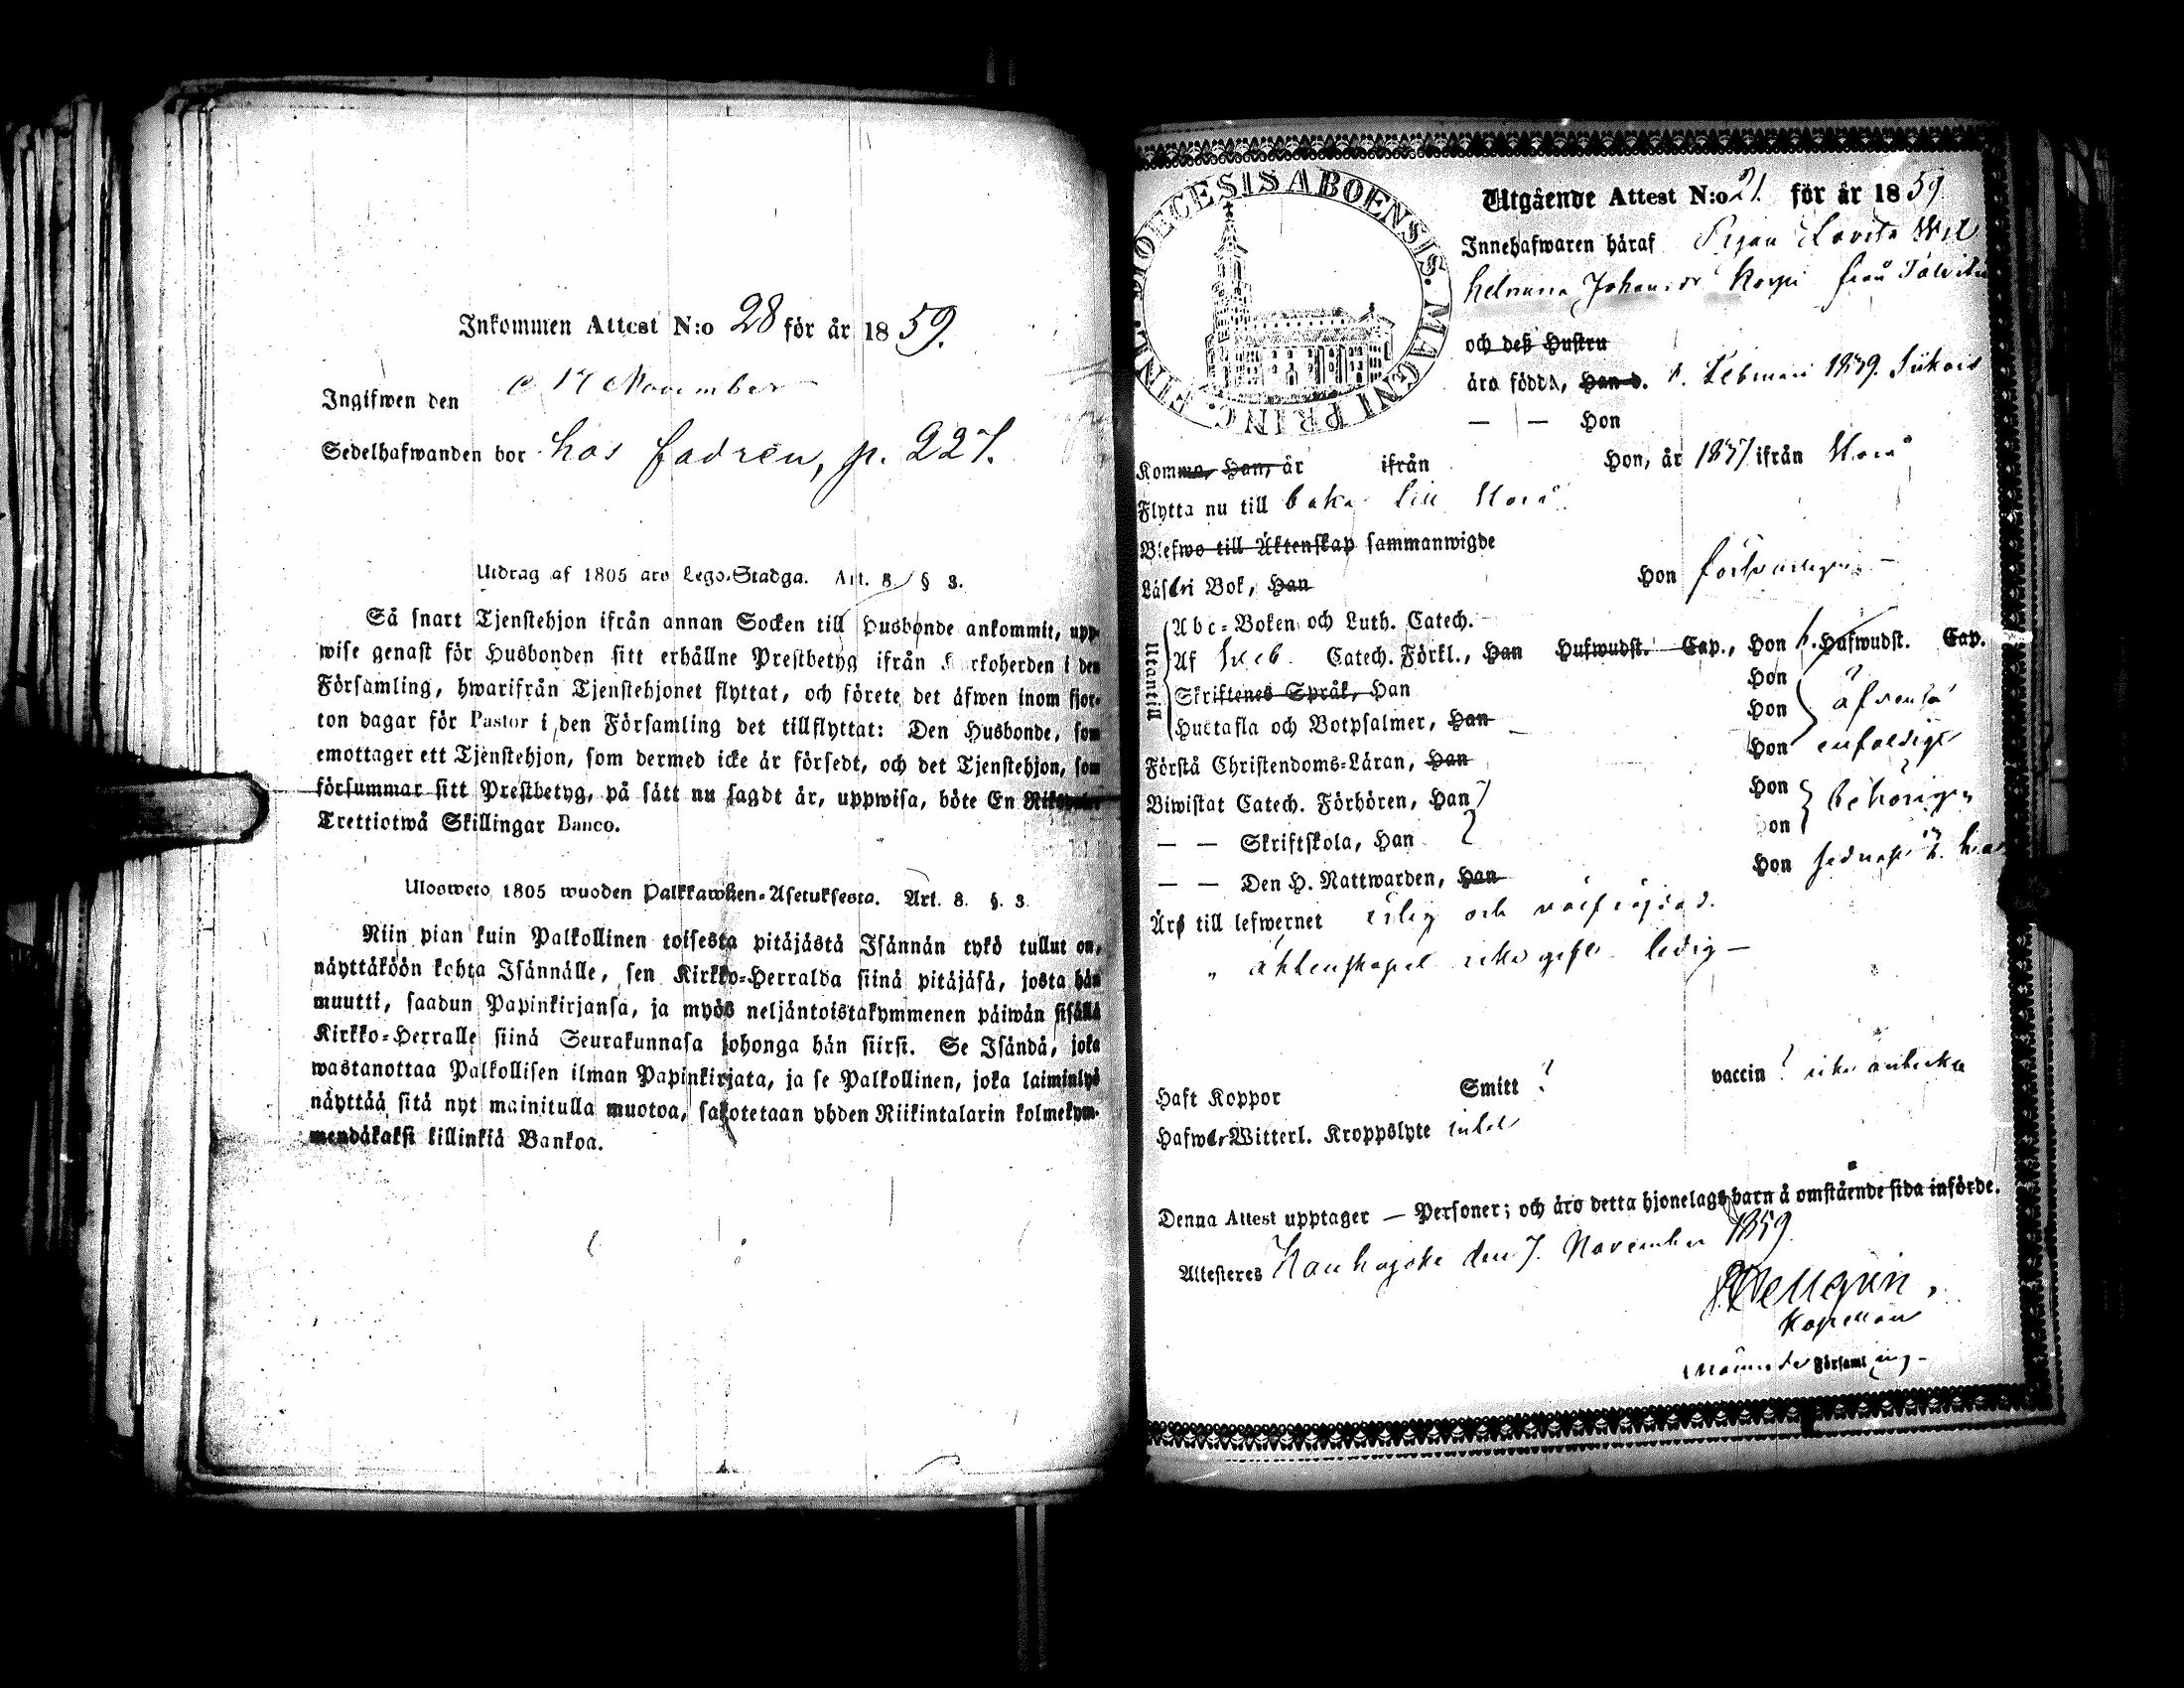 Inkommen Attest N:o 28 för år 1859.
Ingifwen den d 17 November
Sedelhafwanden bor hos fadren, p. 227.
Utdrag af 1805 års Lego-Stadga. Art. 8 § 3.
Så snart Tjenstehjon ifrån annan Socken till Husbonde ankommit, upp-
wise genast för Husbonden sitt erhållne Prestbetyg ifrån Kyrkoherden i den
Församling, hwarifrån Tjenstehjonet flyttat, och förete det äfwen inom fjor-
ton dagar för Pastor i den Församling det tillflyttat: Den Husbonde, som
emottager ett Tjenstehjon, som dermed icke är försedt, och det Tjenstehjon, som
försummar sitt Prestbetyg, på sätt nu sagdt är, uppwisa, böte En
Trettiotwå Skillingar Banco.
Ulosweto 1805 wuoden Palkkawäen-Asetuksesta. Art. 8. §. 3.
Niin pian kuin Palkollinen toisesta pitäjästä Isännän tykö tullut on,
näyttäköön kohta Isännälle, sen Kirkko-Herralda siinä pitäjäsä, josta hän
muutti, saadun Papinkirjansa, ja myös neljäntoistakymmenen päiwän sisällä
Kirkko-Herralle siinä Seurakunnasa johonga hän siirsi. Se Isändä, joka
wastanottaa Palkollisen ilman Papinkirjata, ja se Palkollinen, joka laiminlyö
näyttää sitä nyt mainitulla muotoa, sakotetaan yhden Riikintalarin kolmekym-
mendäkaksi killinkiä Bankoa.
DIOECESIS ABOENSIS. MAGNI PRINC. FINL.
Utgående Attest N:o 21. för år 1859
Innehafwaren häraf Pigan Lovisa Wil
helmina Johansdr Korpi från
och deß Hustru
äro födda, Han d. Februari 1839.
— — Hon
Komma, Han, år ifrån Hon, år 1857 ifrån
Flytta nu till baka till
Blefwo till Äktenskap sammanwigde
Läsa i Bok, Han Hon försvarligen —
Utantill
Abc-Boken och Luth. Catech.
Af Catech. Förkl., Han Hufwudst. Cap., Hon Hufwudst. Cap.
Skriftenes Språk, Han Hon
Hustafla och Botpsalmer, Han Hon äfvenså
Förstå Christendoms-Läran, Han Hon enfaldigt
Biwistat Catech. Förhören, Han Hon behörigen
— — Skriftskola, Han Hon
— — Den H. Nattwarden, Han Hon sednast
Äro till lefwernet ärlig och välfräjdad.
" äktenskapet icke gift ledig —
Haft Koppor Smitt ? vaccin ? icke anteckn
Hafwa Witterl. Kroppslyte intet
Denna Attest upptager — Personer; och äro detta hjonelags barn å omstående sida införde.
Attesteres Honkajoki den 7. November 1859.
Kapellan
Församling